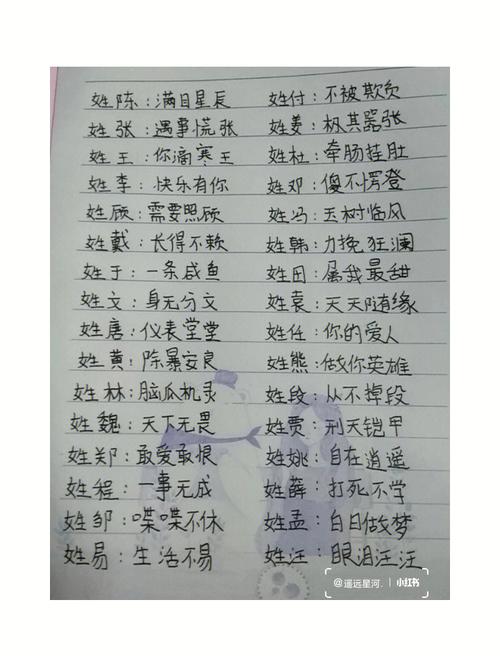 姓陈：满目星辰
姓张：遇事慌张
姓王：你滴寒王
姓李：快乐有你
姓顾：需要照顾
姓戴：长得不赖
姓于：一条咸鱼
姓文：身无分文
姓唐：仪表堂堂
姓黄：除暴安良
姓林：脑瓜机灵
姓魏：天下无畏
姓郑：敢爱敢恨
姓程：一事无成
姓邹：喋喋不休
姓易：生活不易
姓付：不被欺负
姓姜：极其嚣张
姓杜：牵肠挂肚
姓邓：傻不愣登
姓冯：玉树临风
姓韩：力挽狂澜
姓田：属我最甜
姓袁：天天随缘
姓任：你的爱人
姓熊：做你英雄
姓段：从不掉段
姓贾：刑天铠甲
姓姚：自在逍遥
姓薛：打死不学
姓孟：白日做梦
姓汪：眼泪汪汪
@遥远星河.
小红书